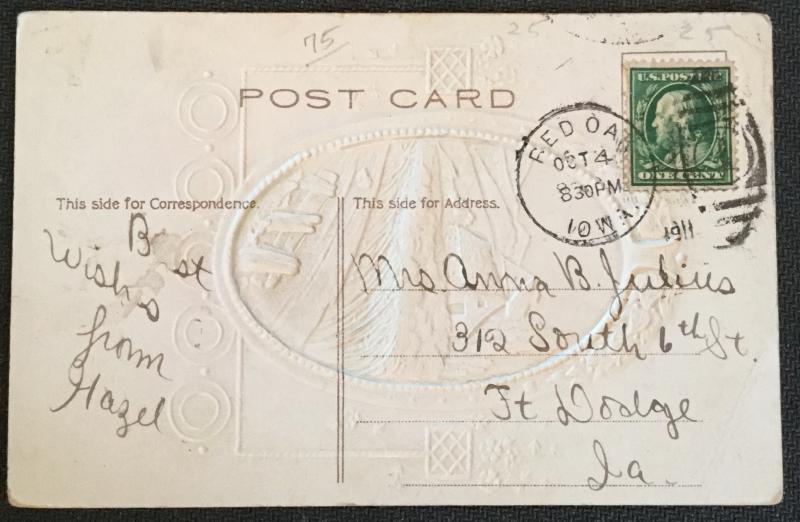 75
25
25
POST CARD
U.S. POSTAGE
ONE CENT
RED OAK
OCT 4
830PM
1911
IOWA
This side for Correspondence.
This side for Address.
Best
Wishes
from
Hazel
Mrs. Anna B. Julius
312 South 6th St.
Ft Dodge
Ia.